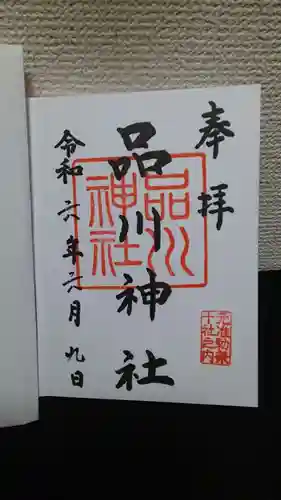 奉拝
品川神社
令和六年六月九日
品川
神社
准勅祭
十社之内